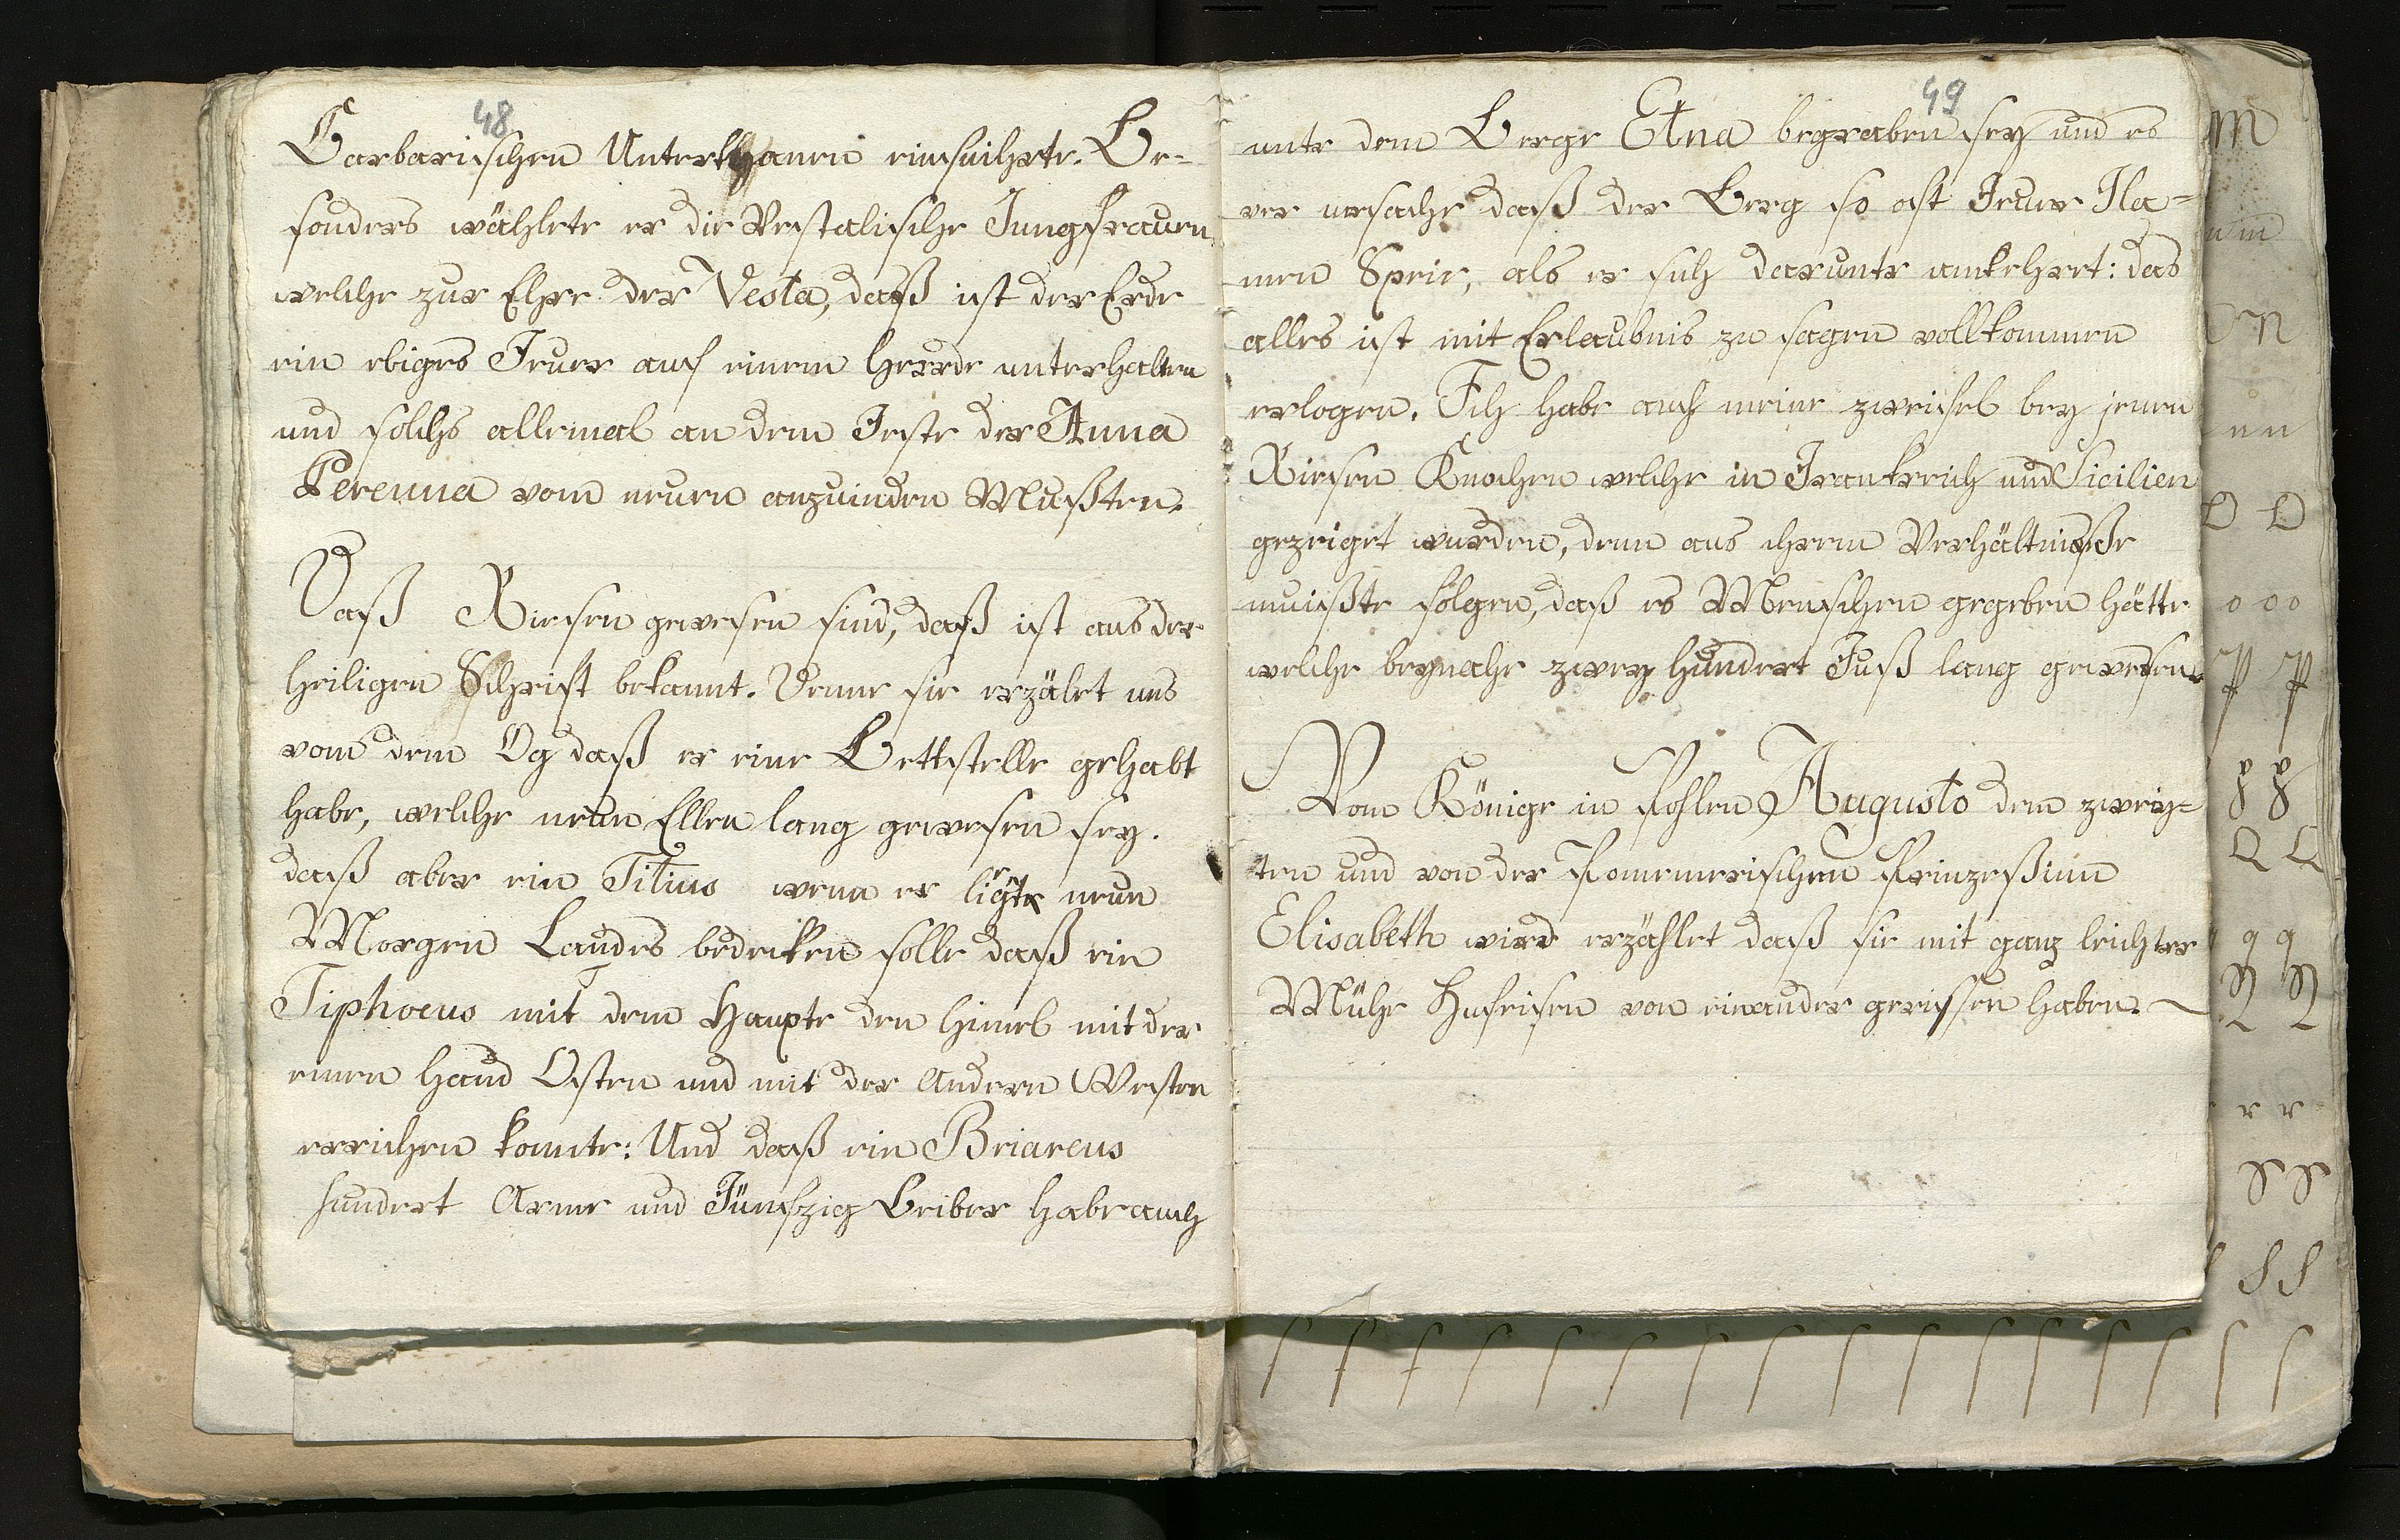 48
Barbarischen Unterthanen einfuihrte. Be-
sonders wählete er die Vestalische Jungfrauen
welche zur Ehre der Vesta, daß ist der Erde
ein ebiges Feuer auf einem Heerde unterhalten
und solchs allemal an dem Feste der Anna
Perenna vom neuen anzuinden Mußten.
Daß Riesen gewesen sind, daß ist aus der
heiligen Schrift bekannt. Denne sie erzälet uns
vom dem Og daß er eine Bettstelle gehabt
habe, welche neun Ellen lang gewesen sey.
daß aber ein Titius wenn er ligte neun
Morgen Landes bedecken solle daß ein
Tiphoeus mit dem Haupte den Himel mit der
einen Hand Osten und mit der Andern Westen
erreichen konnte: Und daß ein Briareus
hundert Arme und Fünfzig Leiber habe auch
49
unte dem Berge Etna begraben sey und es
ver ursache daß der Berg so oft Feuer Fla-
men Speie, als er sich darunte umkehret: das
alles ist mit Erlaubnis zu sagen vollkommen
erlogen. Ich habe auch meine zweifel bey jenen
Riesen Knochen welche in Frankreich und Sicilien
gezeiget wurden, denn aus ihrem Verhältnisse
muißte folgen, daß es Menschen gegeben hätte
welche beynahe zwey hundert Fuß lang gewesen.
Vom Könige in Pohlen Augusto dem zwey-
ten und von der Pommerischen Prinzeßinn
Elisabeth wird erzählet daß sie mit ganz leichter
Mühe Hufeisen von einander gerissen haben.
M
n m
N
n n
O O
o o o
P P
p p
Q Q
q q
R R
r r
S S
s s
ſ ſ ſ ſ ſ ſ ſ ſ ſ ſ ſ ſ ſ ſ ſ